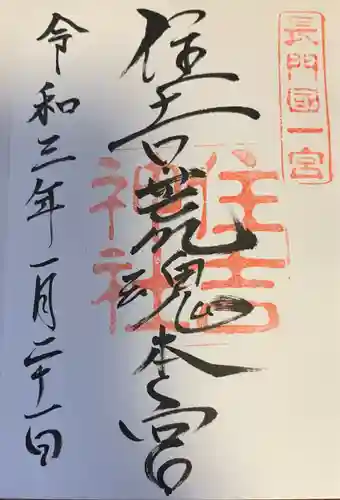 長門國一宮
住吉荒魂本宮
住吉神社
令和三年一月二十一日